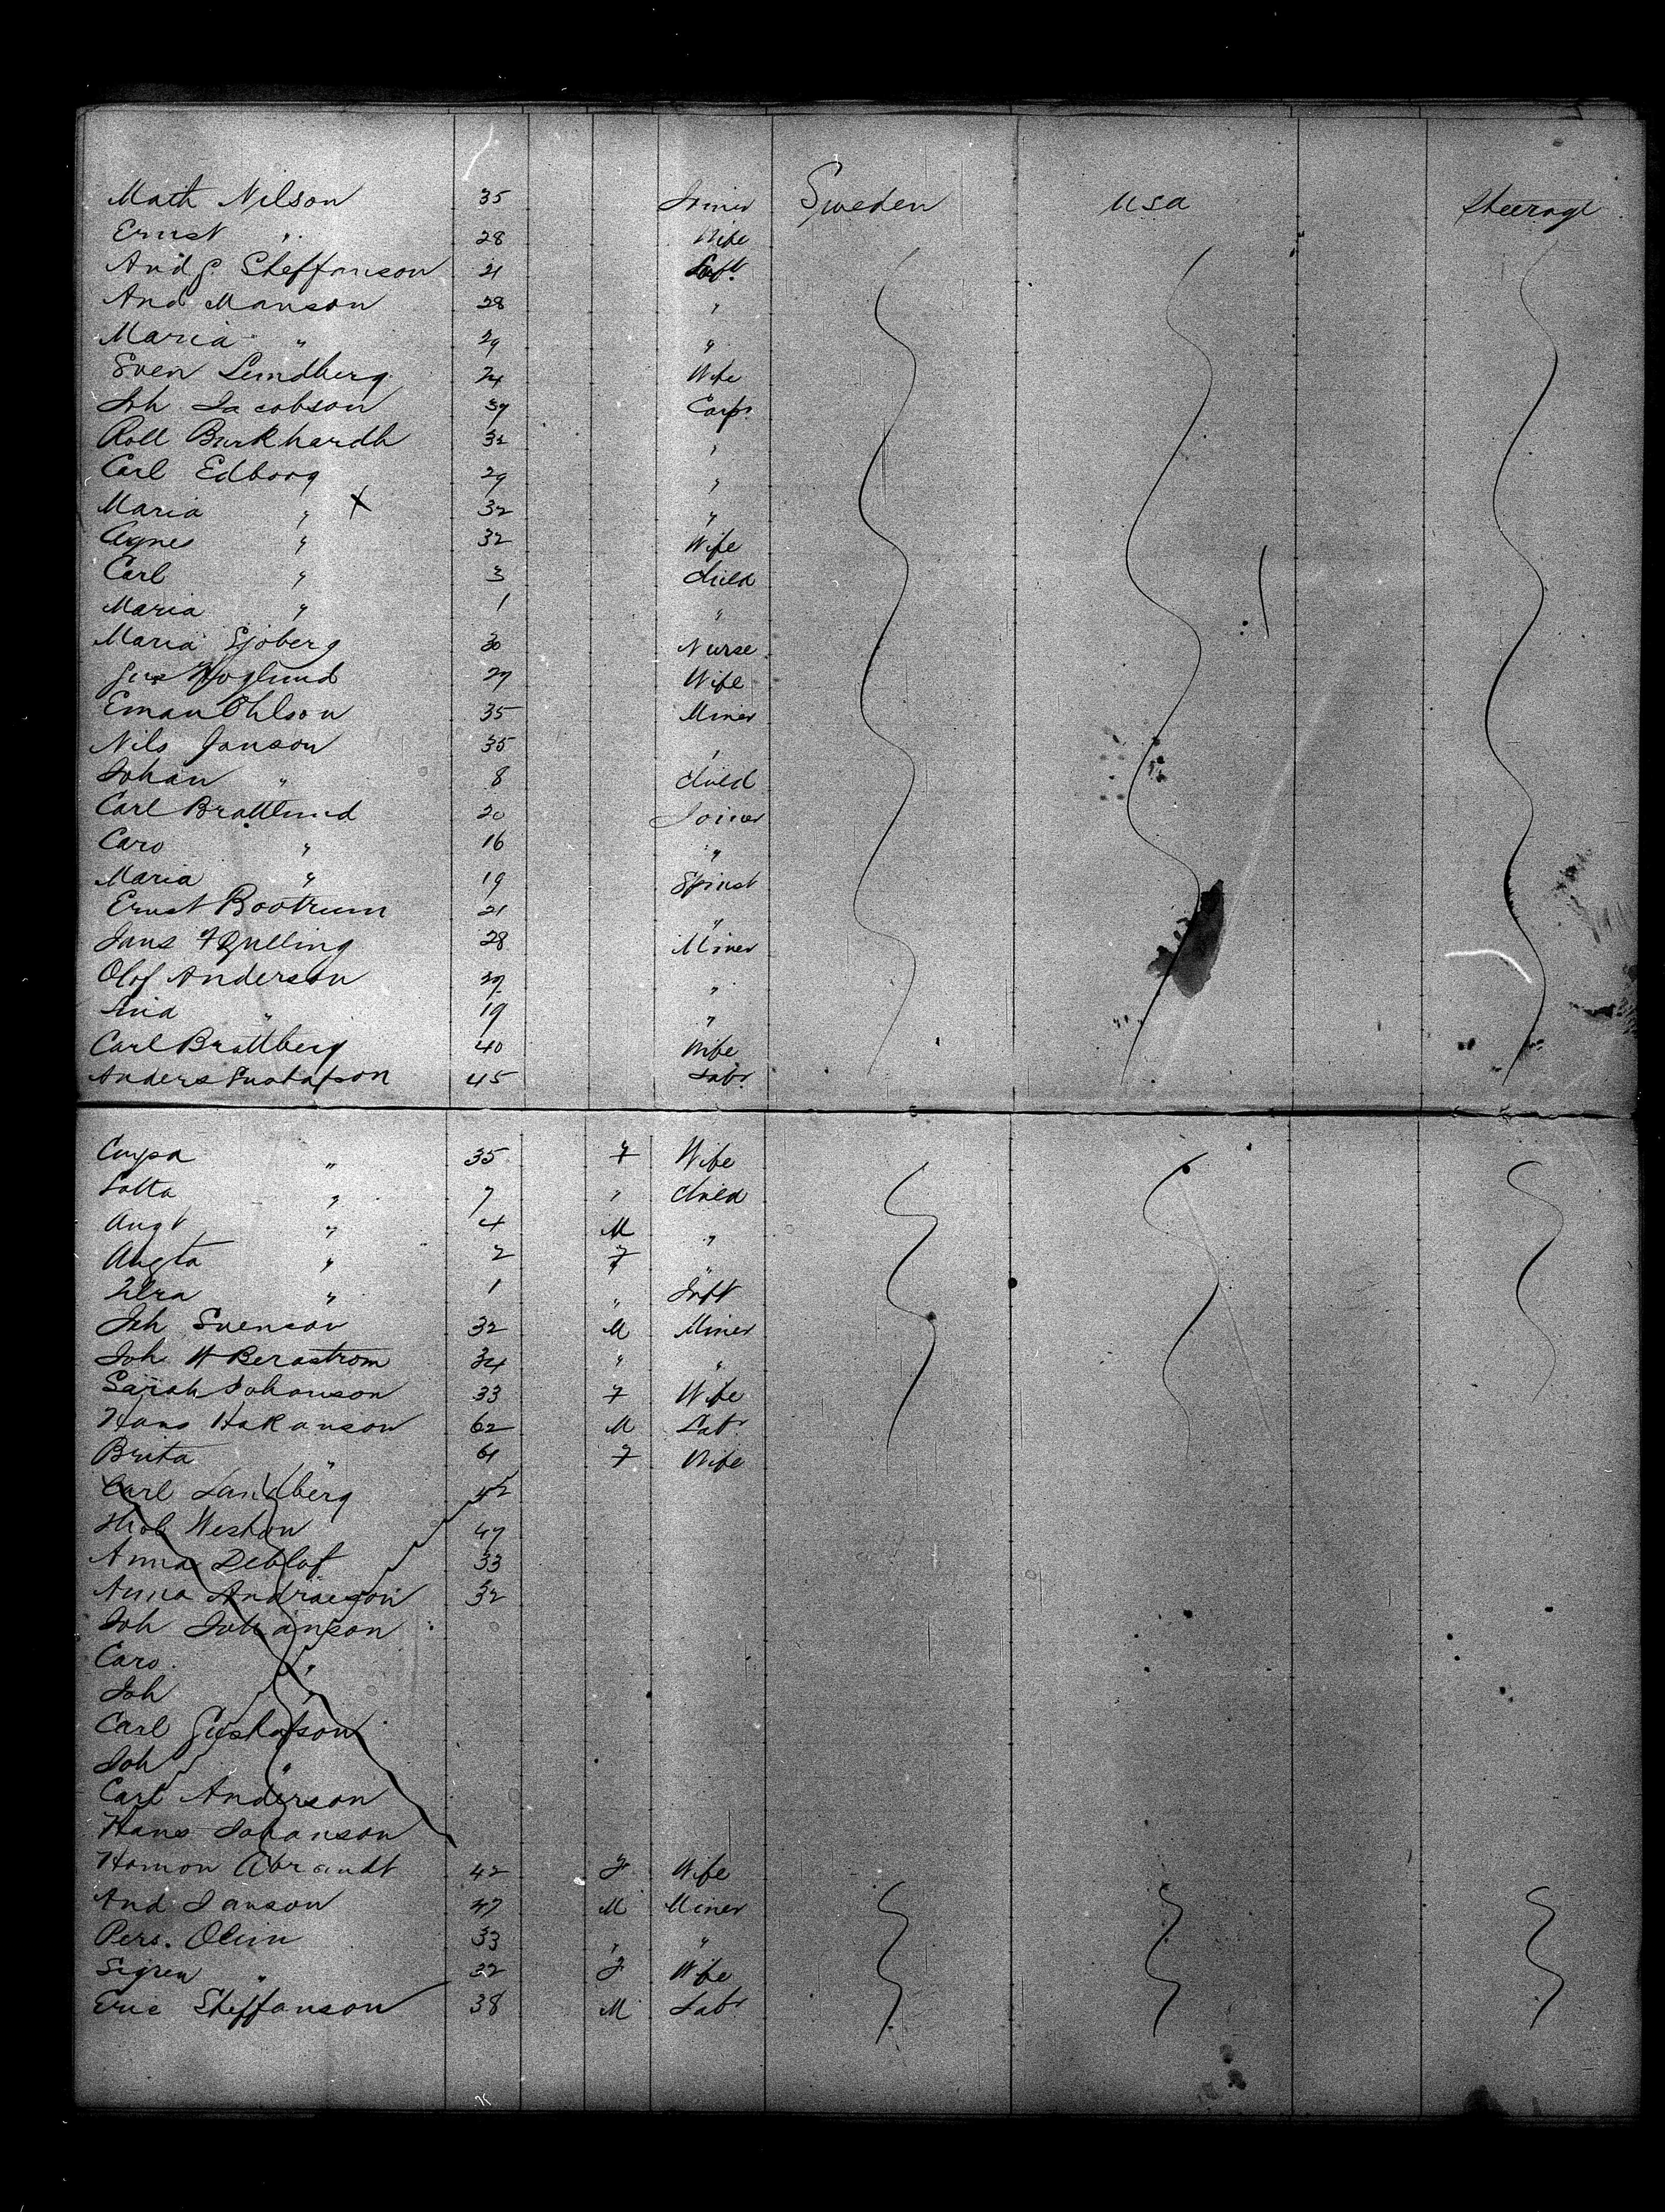 Math Nilson 35 Joiner Sweden USA Steerage
Ernst " 28 Wife
And G Steffanson 21
And Manson 28 "
Maria " 29 "
Sven Lundberg 24 Wife
Joh Jacobson 37 Carp.
Roll Burkhardh 32 "
Carl Edborg 29 "
Maria " X 32 "
Agnes " 32 Wife
Carl " 3 Child
Maria " 1 "
Maria Sjoberg 30 Nurse
Gus Hoglund 27 Wife
Eman Ohlson 35 Miner
Nils Janson 35 "
Johan " 8 Child
Carl Brattlund 20 Joiner
Caro " 16 "
Maria " 19 Spinst
Ernst Bootrum 21 "
Jans 28 Miner
Olof Anderson 39 "
" 19 "
Carl Brattberg 40 Wife
Anders Gustafson 45 Labr
" 35 F Wife
Lotta " 7 " Child
Augt " 4 M "
Augta " 2 F "
" 1 " Inft
Joh Svenson 32 M Miner
Joh W Bergstrom 34 " "
Sarah Johanson 33 F Wife
Hans Hakanson 62 M Labr
Brita " 61 F Wife
Carl Landberg 42
Weston 47
Anna Detlof 33
Anna Andraeson 32
Joh Johanson
Caro "
Joh "
Carl Gustafson
Joh "
Carl Anderson
Hans Johanson
Homon Abrandt 42 F Wife
And Janson 47 M Miner
Pers. Olin 33 " "
Sigren " 32 F Wife
Eric Steffanson 38 M Labr